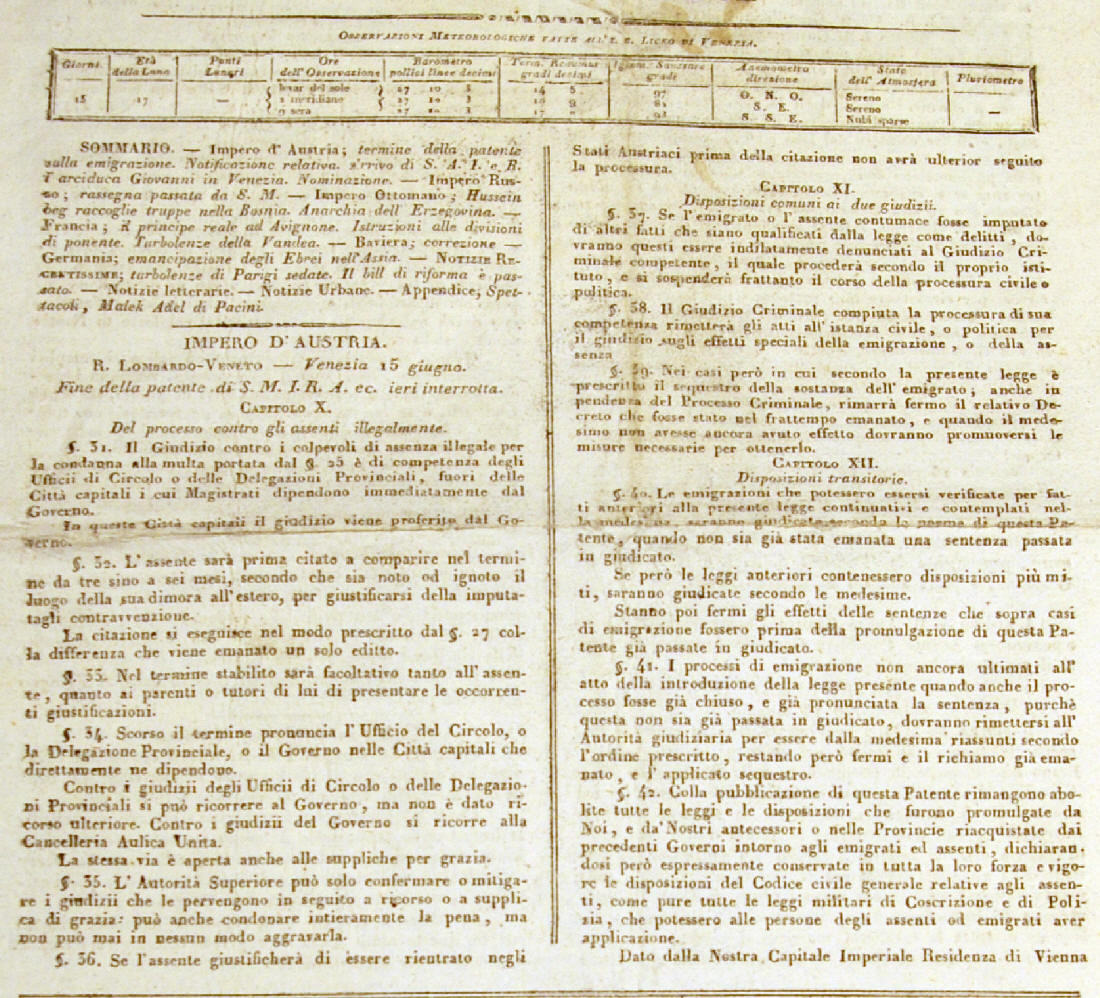 OSSERVAZIONI METEOROLOGICHE FATTE ALL'I. R. LICEO DI VENEZIA.
Giorni. Età della Luna Punti Lunari Ore dell'Osservazione Barometro pollici linee decimi Term. Reaumur gradi decimi Igrom. Saussure gradi Anemometro direzione Stato dell'Atmosfera Pluviometro
15 17 — levar del sole 27 10 14 5 97 O. N. O. Sereno —
2 meridiane 27 10 19 S. E. Sereno
9 sera 27 10 17 S. S. E. Nubi sparse
SOMMARIO. — Impero d' Austria; termine della patente
sulla emigrazione. Notificazione relativa. Arrivo di S. A. I. e R.
l' arciduca Giovanni in Venezia. Nominazione. — Impero Rus-
so; rassegna passata da S. M. — Impero Ottomano; Hussein
beg raccoglie truppe nella Bosnia. Anarchia dell' Erzegovina. —
Francia; il principe reale ad Avignone. Istruzioni alle divisioni
di ponente. Turbolenze della Vandea. — Baviera; correzione —
Germania; emancipazione degli Ebrei nell'Assia. — NOTIZIE RE-
CENTISSIME; turbolenze di Parigi sedate. Il bill di riforma è pas-
sato. — Notizie letterarie. — Notizie Urbane. — Appendice; Spet-
tacoli, Malek Adel di Pacini.
IMPERO D' AUSTRIA.
R. LOMBARDO-VENETO — Venezia 15 giugno.
Fine della patente di S. M. I. R. A. ec. ieri interrotta.
CAPITOLO X.
Del processo contro gli assenti illegalmente.
§. 31. Il Giudizio contro i colpevoli di assenza illegale per
la condanna alla multa portata dal §. 25 è di competenza degli
Ufficii di Circolo o delle Delegazioni Provinciali, fuori delle
Città capitali i cui Magistrati dipendono immediatamente dal
Governo.
In queste Città capitali il giudizio viene proferito dal Go-
verno.
§. 32. L' assente sarà prima citato a comparire nel termi-
ne da tre sino a sei mesi, secondo che sia noto od ignoto il
luogo della sua dimora all' estero, per giustificarsi della imputa-
tagli contravvenzione.
La citazione si eseguisce nel modo prescritto dal §. 27 col-
la differenza che viene emanato un solo editto.
§. 33. Nel termine stabilito sarà facoltativo tanto all' assen-
te, quanto ai parenti o tutori di lui di presentare le occorren-
ti giustificazioni.
§. 34. Scorso il termine pronuncia l' Ufficio del Circolo, o
la Delegazione Provinciale, o il Governo nelle Città capitali che
direttamente ne dipendono.
Contro i giudizii degli Ufficii di Circolo o delle Delegazio-
ni Provinciali si può ricorrere al Governo, ma non è dato ri-
corso ulteriore. Contro i giudizii del Governo si ricorre alla
Cancelleria Aulica Unita.
La stessa via è aperta anche alle suppliche per grazia.
§. 35. L' Autorità Superiore può solo confermare o mitiga-
re i giudizii che le pervengono in seguito a ricorso o a suppli-
ca di grazia: può anche condonare intieramente la pena, ma
non può mai in nessun modo aggravarla.
§. 36. Se l'assente giustificherà di essere rientrato negli
Stati Austriaci prima della citazione non avrà ulterior seguito
la processura.
CAPITOLO XI.
Disposizioni comuni ai due giudizii.
§. 37. Se l' emigrato o l' assente contumace fosse imputato
di altri fatti che siano qualificati dalla legge come delitti, do-
vranno questi essere indilatamente denunciati al Giudizio Cri-
minale competente, il quale procederà secondo il proprio isti-
tuto, e si sospenderà frattanto il corso della processura civile o
politica.
§. 38. Il Giudizio Criminale compiuta la processura di sua
competenza rimetterà gli atti all' istanza civile, o politica per
il giudizio sugli effetti speciali della emigrazione, o della as-
senza
§. 39. Nei casi però in cui secondo la presente legge è
prescritto il sequestro della sostanza dell' emigrato; anche in
pendenza del Processo Criminale, rimarrà fermo il relativo De-
creto che fosse stato nel frattempo emanato, e quando il mede-
simo non avesse ancora avuto effetto dovranno promuoversi le
misure necessarie per ottenerlo.
CAPITOLO XII.
Disposizioni transitorie.
§. 40. Le emigrazioni che potessero essersi verificate per fat-
ti anteriori alla presente legge continuativi e contemplati nel-
la medesima, saranno giudicate secondo le norme di questa Pa-
tente, quando non sia già stata emanata una sentenza passata
in giudicato.
Se però le leggi anteriori contenessero disposizioni più mi-
ti, saranno giudicate secondo le medesime.
Stanno poi fermi gli effetti delle sentenze che sopra casi
di emigrazione fossero prima della promulgazione di questa Pa-
tente già passate in giudicato.
§. 41. I processi di emigrazione non ancora ultimati all'
atto della introduzione della legge presente quando anche il pro-
cesso fosse già chiuso, e già pronunciata la sentenza, purchè
questa non sia già passata in giudicato, dovranno rimettersi all'
Autorità giudiziaria per essere dalla medesima riassunti secondo
l'ordine prescritto, restando però fermi e il richiamo già ema-
nato, e l' applicato sequestro.
§. 42. Colla pubblicazione di questa Patente rimangono abo-
lite tutte le leggi e le disposizioni che furono promulgate da
Noi, e da' Nostri antecessori o nelle Provincie riacquistate dai
precedenti Governi intorno agli emigrati ed assenti, dichiaran-
dosi però espressamente conservate in tutta la loro forza e vigo-
re le disposizioni del Codice civile generale relative agli assen-
ti, come pure tutte le leggi militari di Coscrizione e di Poli-
zia, che potessero alle persone degli assenti od emigrati aver
applicazione.
Dato dalla Nostra Capitale Imperiale Residenza di Vienna